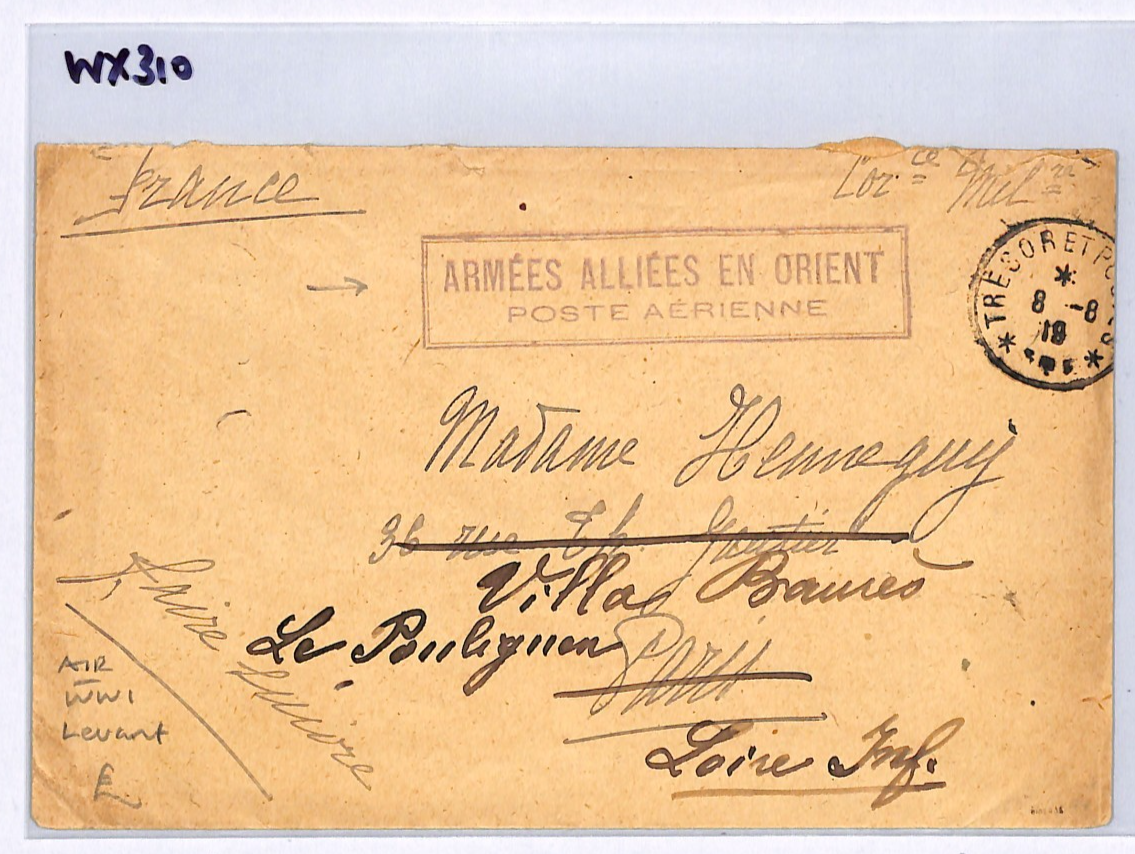 WX310
France
Cor ce Mil re
ARMÉES ALLIÉES EN ORIENT
POSTE AÉRIENNE
* TRESOR ET POSTES *
*
8 -8
18
Madame Hennequy
36 rue Th. Gautier
Villa Baures
Le Pouliguen
Paris
Loire Inf.
faire suivre
AIR
WW1
Levant
£